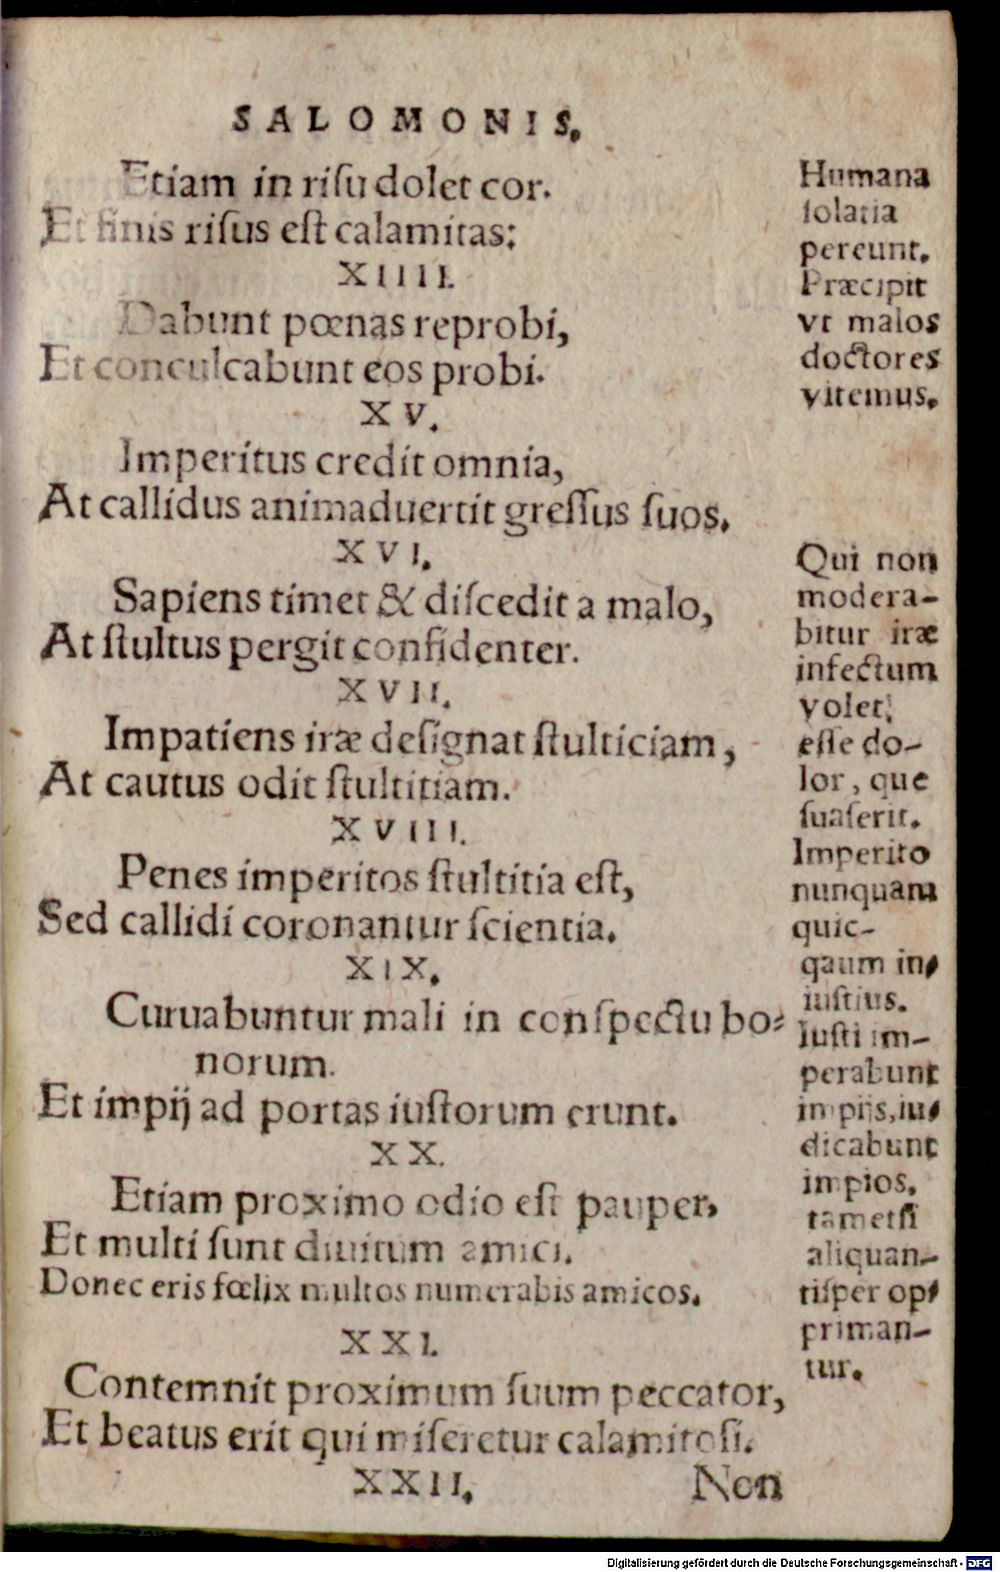 SALOMONIS.
Etiam in riſu dolet cor.
Et finis riſus eſt calamitas:
XIIII.
Dabunt pœnas reprobi,
Et conculcabunt eos probi.
XV.
Imperitus credit omnia,
At callidus animaduertit greſſus ſuos.
XVI.
Sapiens timet & diſcedit a malo,
At ſtultus pergit confidenter.
XVII.
Impatiens iræ deſignat ſtulticiam,
At cautus odit ſtultitiam.
XVIII.
Penes imperitos ſtultitia eſt,
Sed callidi coronantur ſcientia.
XIX.
Curuabuntur mali in conſpectu bo-
norum.
Et impij ad portas iuſtorum erunt.
XX.
Etiam proximo odio eſt pauper,
Et multi ſunt diuitum amici.
Donec eris fœlix multos numerabis amicos.
XXI.
Contemnit proximum ſuum peccator,
Et beatus erit qui miſeretur calamitoſi.
XXII.
Non
Humana
ſolatia
pereunt.
Præcipit
vt malos
doctores
vitemus.
Qui non
modera-
bitur iræ
infectum
volet
eſſe do-
lor, que
ſuaſerit.
Imperito
nunquam
quic-
qaum in-
iuſtius.
Iuſti im-
perabunt
impijs, iu-
dicabunt
impios,
tametſi
aliquan-
tiſper op-
priman-
tur.
Digitalisierung gefördert durch die Deutsche Forschungsgemeinschaft - DFG